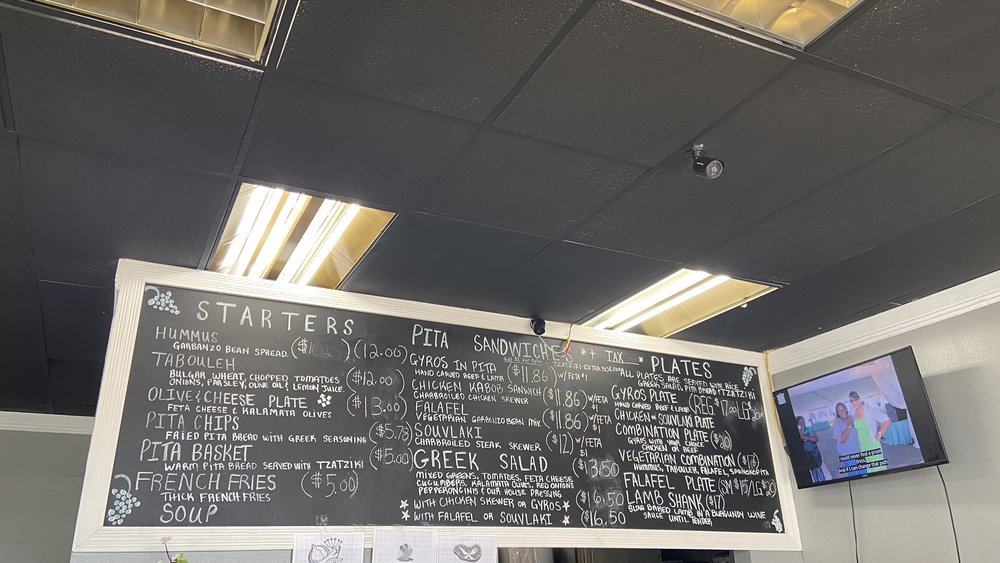 STARTERS
HUMMUS
GARBANZO BEAN SPREAD. (12.00)
TABOULEH
BULGAR WHEAT, CHOPPED TOMATOES
ONIONS, PARSLEY, OLIVE OIL & LEMON JUICE. ($12.00)
OLIVE & CHEESE PLATE
FETA CHEESE & KALAMATA OLIVES ($13.00)
PITA CHIPS
FRIED PITA BREAD WITH GREEK SEASONING ($5.78)
PITA BASKET
WARM PITA BREAD SERVED WITH TZATZIKI ($5.00)
FRENCH FRIES ($5.00)
THICK FRENCH FRIES
SOUP
PITA SANDWICHES *+ TAX
TZATZIKI-EXTRA
GYROS IN PITA ($11.86) W/FETA
HAND CARVED BEEF & LAMB
CHICKEN KABOB SANDWICH
CHARBROILED CHICKEN SKEWER ($11.86) W/FETA
FALAFEL
VEGETARIAN GARABNZO BEAN MIX ($11.86) W/FETA
SOUVLAKI
CHARBROILED STEAK SKEWER ($12) W/FETA
GREEK SALAD
MIXED GREENS, TOMATOES, FETA CHEESE
CUCUMBERS, KALAMATA OLIVES, RED ONIONS
PEPPERONCINIS & OUR HOUSE DRESSING $13.50
WITH CHICKEN SKEWER OR GYROS $16.50
WITH FALAFEL OR SOUVLAKI $16.50
PLATES
ALL PLATES ARE SERVED WITH RICE,
GREEK SALAD, PITA BREAD & TZATZIKI
GYROS PLATE
HAND CARVED BEEF & LAMB (REG $17.00/LG $20)
CHICKEN or SOUVLAKI PLATE
COMBINATION PLATE ($20)
GYROS WITH YOUR CHOICE
CHICKEN OR BEEF
VEGETARIAN COMBINATION
HUMMUS, TABOULEH, FALAFEL,
FALAFEL PLATE (SM $15/LG $20)
LAMB SHANK ($17)
SLOW BAKED LAMB IN A BURGUNDY WINE
SAUCE UNTIL TENDER
I could never find a prom
dress.
And if I can change that path